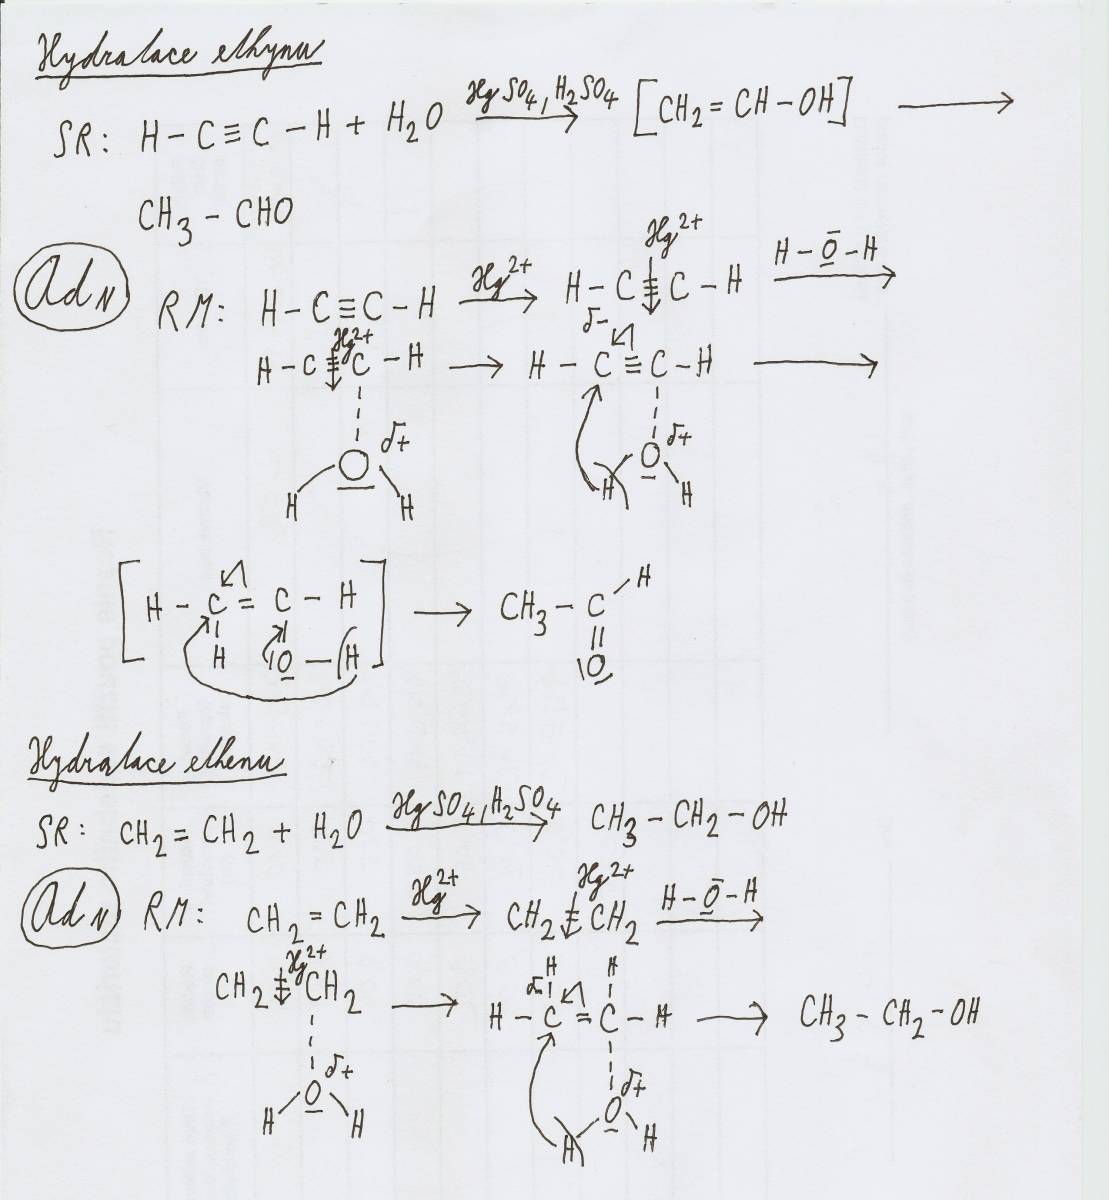 Hydratace ethynu
SR: H – C ≡ C – H + H2O HgSO4, H2SO4 [CH2 = CH – OH]
CH3 – CHO
AdN RM: H – C ≡ C – H Hg2+ H – C ≡ C – H Hg2+ H – O – H
H – C ≡ C – H Hg2+ H – C ≡ C – H δ-
O δ+ O δ+
H H H H
[H – C = C – H] CH3 – C H
H O – H O
Hydratace ethenu
SR: CH2 = CH2 + H2O HgSO4, H2SO4 CH3 – CH2 – OH
AdN RM: CH2 = CH2 Hg2+ CH2 = CH2 Hg2+ H – O – H
H H
CH2 = CH2 Hg2+ H – C = C – H δ- CH3 – CH2 – OH
O δ+ O δ+
H H H H